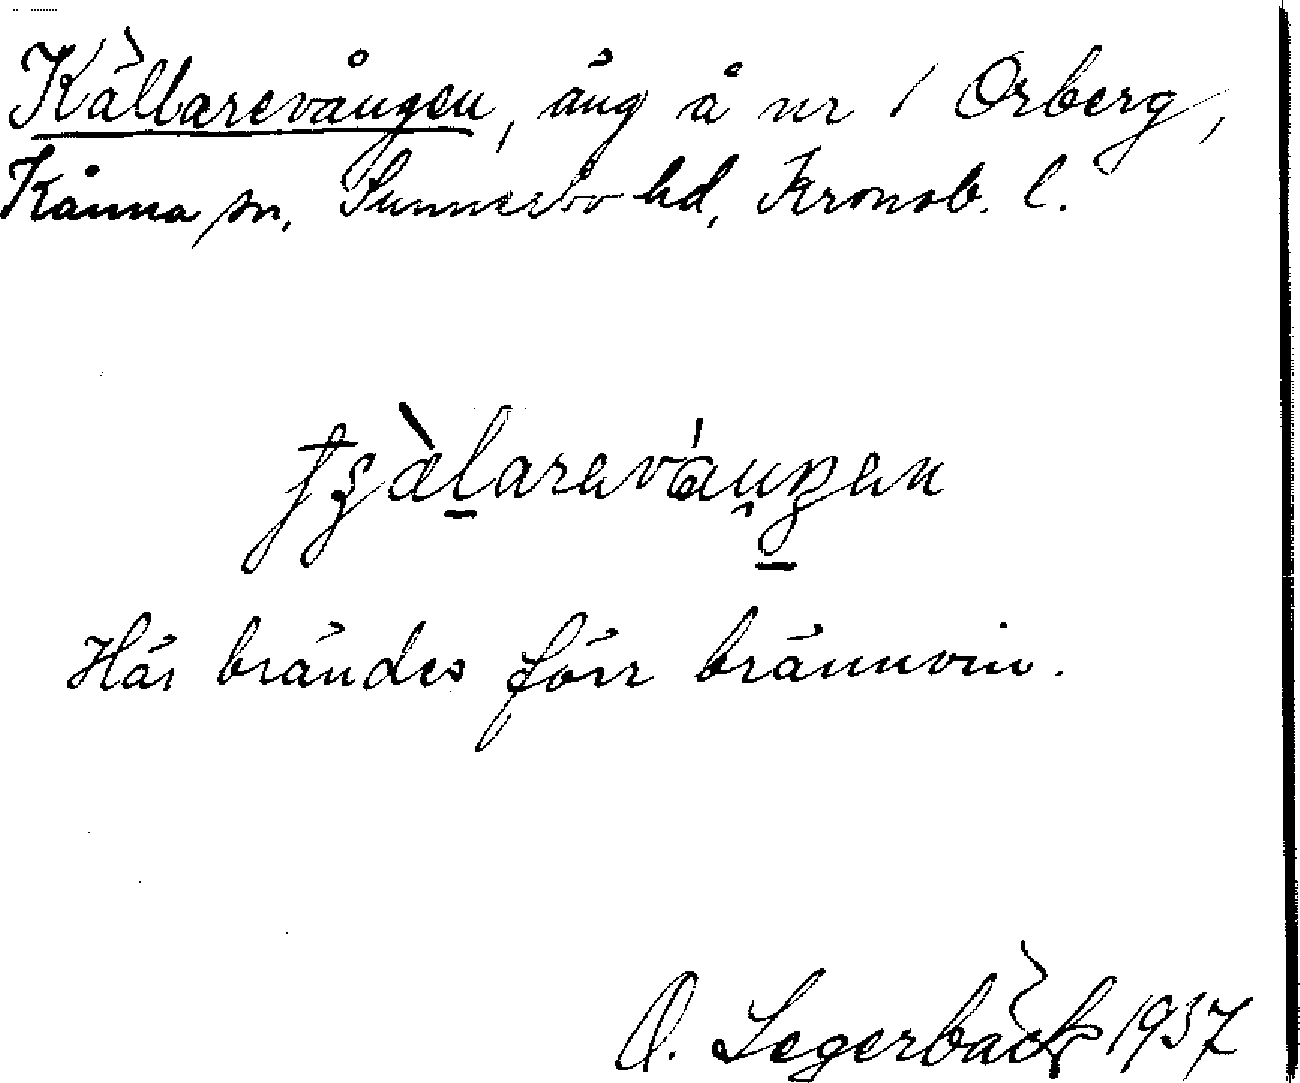 Källarevången, äng å nr 1 Orberg,
Kånna sn, Sunnerbo hd, Kronob. l.
Här brändes förr brännvin.
O. Segerbäck 1937